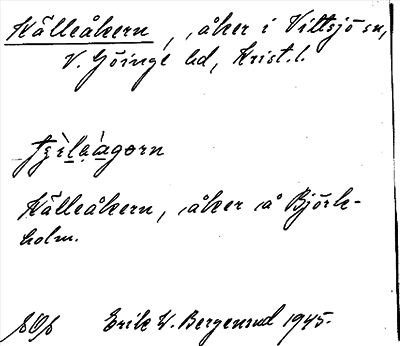 Källeåkern, åker i Vittsjö sn,
V. Göinge hd, Krist. l.
Källeåkern, åker å Björk-
holm.
Erik W. Bergenrud 1945.